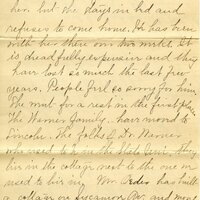 her. but she stays in bed and
refuses to come home. Dr has been
with her there over two weeks. It
is dreadfully expensive and they
have lost so much the last few
years. People feel so sorry for him
She went for a rest in the first place
The Warner family have moved to
Lincoln. The folks & Dr. Warner
who used to the State , they
live in the cottage next to the one
used to live in. has built
a cottage on Sycamore and